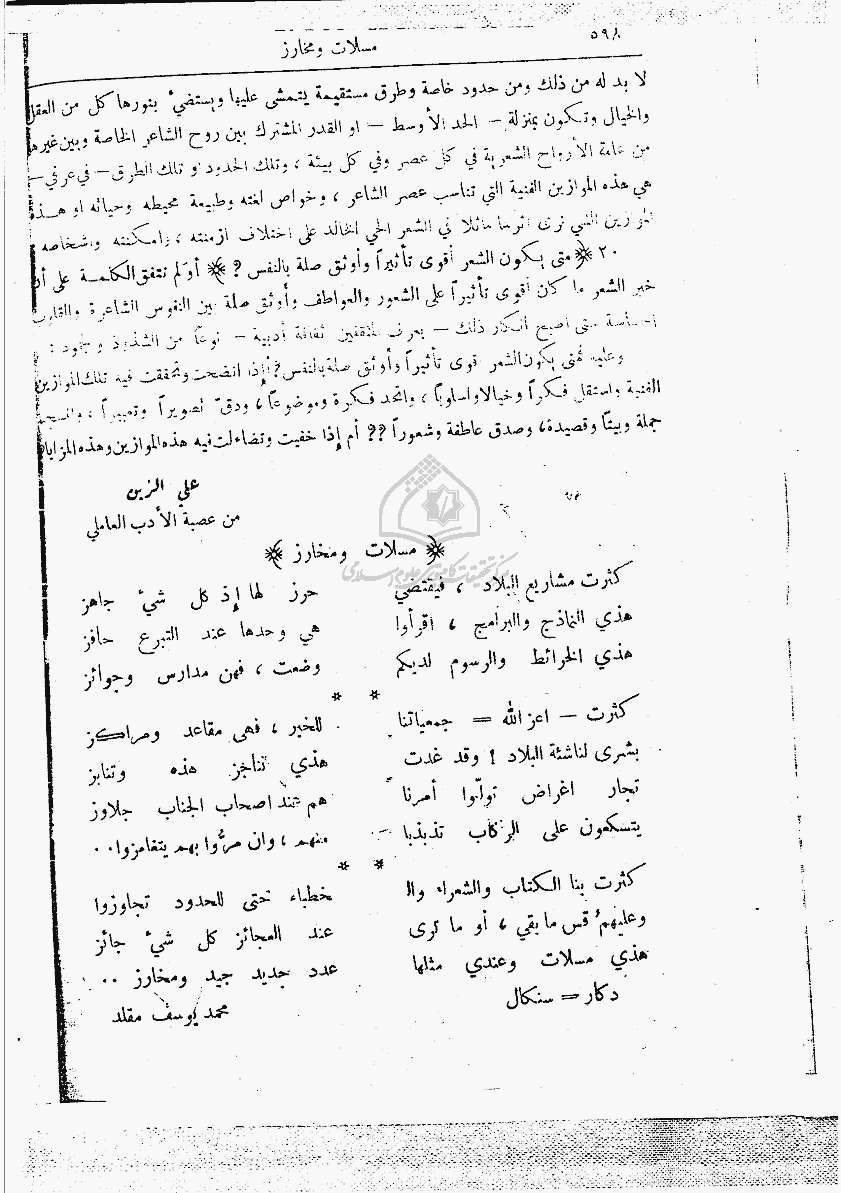 ٥٩٨
مسلات ومخارز
لا بد له من ذلك ومن حدود خاصة وطرق مستقيمة يتمشى عليها ويستضيء بنورها كل من العقل
والخيال وتكون بمنزلة – الحد الأوسط – او القدر المشترك بين روح الشاعر الخاصة وبين غيرها
من عامة الأرواح الشعرية في كل عصر وفي كل بيئة ، وتلك الحدود او تلك الطرق – في عرفي –
هي هذه الموازين الفنية التي تناسب عصر الشاعر ، وخواص لغته وطبيعة محيطه وحياته او هذه
الموازين التي ترى اثرها ماثلا في الشعر الحي الخالد على اختلاف ازمنته ، وامكنته واشخاصه
٢٠ ﴿ متى يكون الشعر أقوى تأثيراً وأوثق صلة بالنفس ? ﴾ أولم تتفق الكلمة على أن
خير الشعر ما كان أقوى تأثيراً على الشعور والعواطف وأوثق صلة بين النفوس الشاعرة والقلوب
الحساسة متى اصبح انكار ذلك – بعرف المثقفين ثقافة أدبية – نوعاً من الشذوذ والجمود :
وعليه فمتى يكون الشعر اقوى تأثيراً وأوثق صلة بالنفس ? أإذا اتضحت وتحققت فيه تلك الموازين
الفنية واستقل فكراً وخيالا واسلوباً ، واتحد فكرة وموضوعاً ، ودق تصويراً وتعبيراً ، وانسجم
جملة وبيتاً وقصيدة ، وصدق عاطفة وشعوراً ?? أم إذا خفيت وتضاءلت فيه هذه الموازين وهذه المزايا
علي الزين
من عصبة الأدب العاملي
﴿ مسلات ومخارز ﴾
مركز تحقيقات كامپيوترى علوم اسلامى
كثرت مشاريع البلاد ، فيقتضي حرز لها إذ كل شيء جاهز
هذي النماذج والبرامج ، اقرأوا هي وحدها عند التبرع حافز
هذي الخرائط والرسوم لديكم وضعت ، فهن مدارس وجوائز
* *
كثرت – اعز الله = جمعياتنا للخير ، فهي مقاعد ومراكز
بشرى لناشئة البلاد ! وقد غدت هذي تناجز هذه وتنابز
تجار اغراض تولّوا أمرنا هم عند اصحاب الجناب جلاوز
يتسكعون على الركاب تذبذبا منهم ، وان مرُّوا بهم يتغامزوا . .
* *
كثرت بنا الكتاب والشعراء والـ خطباء حتى للحدود تجاوزوا
وعليهمُ قس ما بقي ، أو ما ترى عند العجائز كل شيء جائز
هذي مسلات وعندي مثلها عدد جديد جيد ومخارز . .
دكار = سنكال
محمد يوسف مقلد